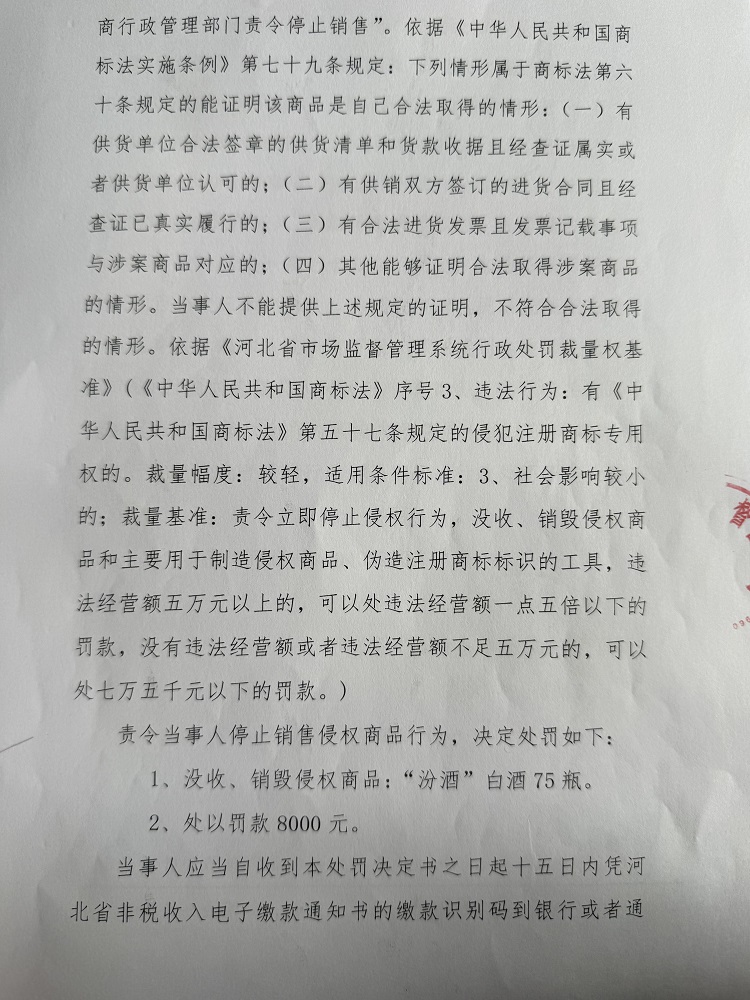 商行政管理部门责令停止销售”。依据《中华人民共和国商
标法实施条例》第七十九条规定：下列情形属于商标法第六
十条规定的能证明该商品是自己合法取得的情形：（一）有
供货单位合法签章的供货清单和货款收据且经查证属实或
者供货单位认可的；（二）有供销双方签订的进货合同且经
查证已真实履行的；（三）有合法进货发票且发票记载事项
与涉案商品对应的；（四）其他能够证明合法取得涉案商品
的情形。当事人不能提供上述规定的证明，不符合合法取得
的情形。依据《河北省市场监督管理系统行政处罚裁量权基
准》(《中华人民共和国商标法》序号 3、违法行为：有《中
华人民共和国商标法》第五十七条规定的侵犯注册商标专用
权的。裁量幅度：较轻，适用条件标准：3、社会影响较小
的；裁量基准：责令立即停止侵权行为，没收、销毁侵权商
品和主要用于制造侵权商品、伪造注册商标标识的工具，违
法经营额五万元以上的，可以处违法经营额一点五倍以下的
罚款，没有违法经营额或者违法经营额不足五万元的，可以
处七万五千元以下的罚款。)
责令当事人停止销售侵权商品行为，决定处罚如下：
1、没收、销毁侵权商品：“汾酒”白酒 75 瓶。
2、处以罚款 8000 元。
当事人应当自收到本处罚决定书之日起十五日内凭河
北省非税收入电子缴款通知书的缴款识别码到银行或者通
督